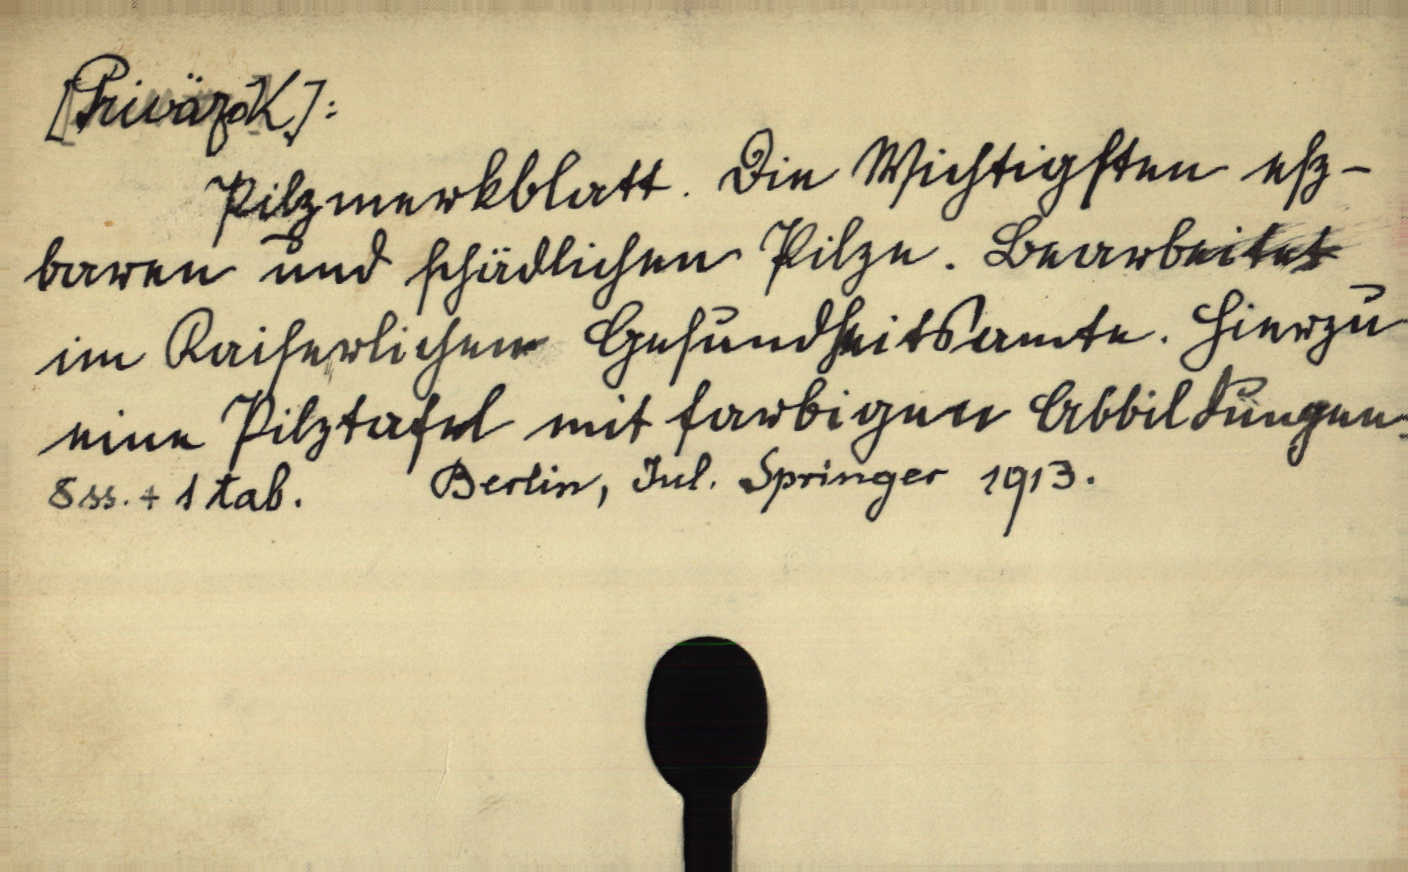 Pilzmerkblatt. Die Wichtigsten eß-
baren und schädlichen Pilze. Bearbeitet
im Kaiserlichen Gesundheitsamte. Hierzu
eine Pilztafel mit farbigen Abbildungen.
8 ss. + 1 tab. Berlin, Jul. Springer 1913.